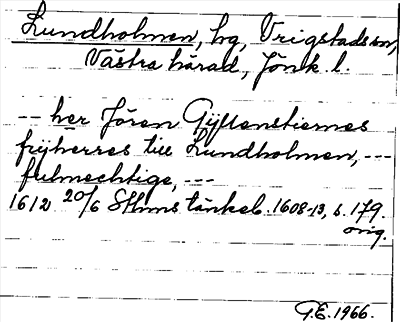 Lundholmen, hg, Vrigstads sn,
Västra härad, Jönk. l.
-- her Jören Gyllenstiernes
frijherres till Lundholmen, ---
fulmechtige, ---
1612 20/6 Sthms tänkeb. 1608-13, s. 179.
orig.
G.E. 1966.